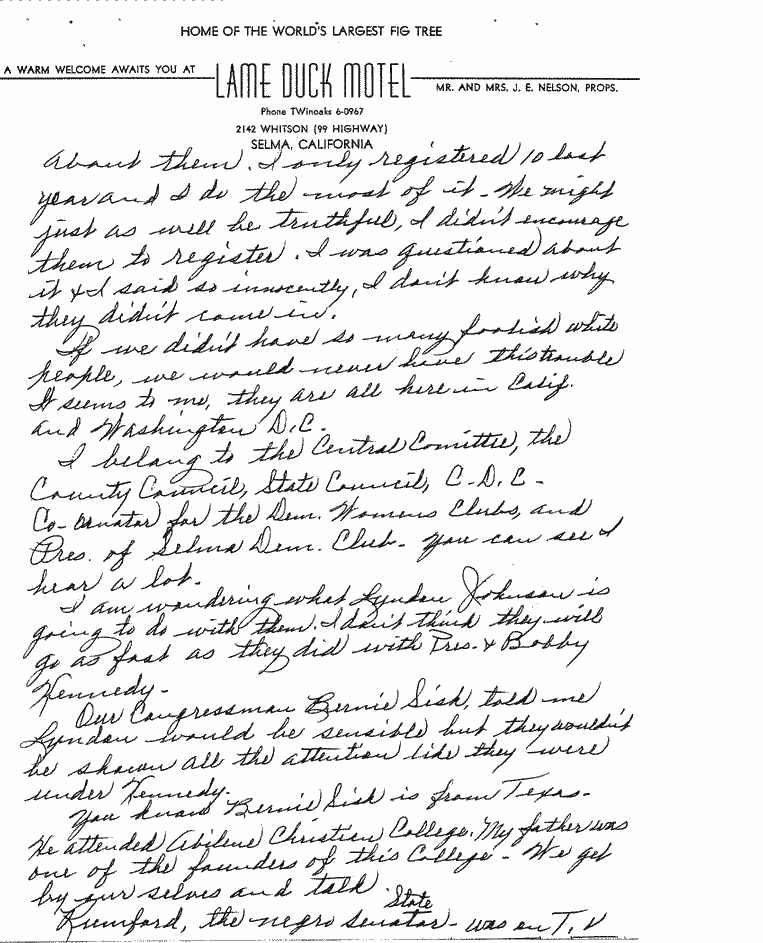 HOME OF THE WORLD'S LARGEST FIG TREE
A WARM WELCOME AWAITS YOU AT
LAME DUCK MOTEL
MR. AND MRS. J. E. NELSON, PROPS.
Phone TWinoaks 6-0967
2142 WHITSON (99 HIGHWAY)
SELMA, CALIFORNIA
About them. I only registered 10 last
year and I do the most of it - We might
just as well be truthful, I didn't encourage
them to register. I was questioned about
it & I said so innocently, I don't know why
they didn't come in.
If we didn't have so many foolish white
people, we would never have this trouble
It seems to me, they are all here in Calif.
and Washington D.C.
I belong to the Central Comittee, the
County Council, State Council, C-D.C-
Co-ornator for the Dem. Womens Clubs, and
Pres. of Selma Dem. Club - You can see I
hear a lot.
I am wondering what Lyndon Johnson is
going to do with them. I don't think they will
go as fast as they did with Pres. & Bobby
Kennedy -
Our Congressman Bernie Sisk, told me
Lyndon would be sensible but they wouldn't
be shown all the attention like they were
under Kennedy.
You know Bernie Sisk is from Texas -
He attended Abilene Christian College. My father was
one of the founders of this College - We get
by our selves and talk.
State
Rumford, the negro senator - was on T.V